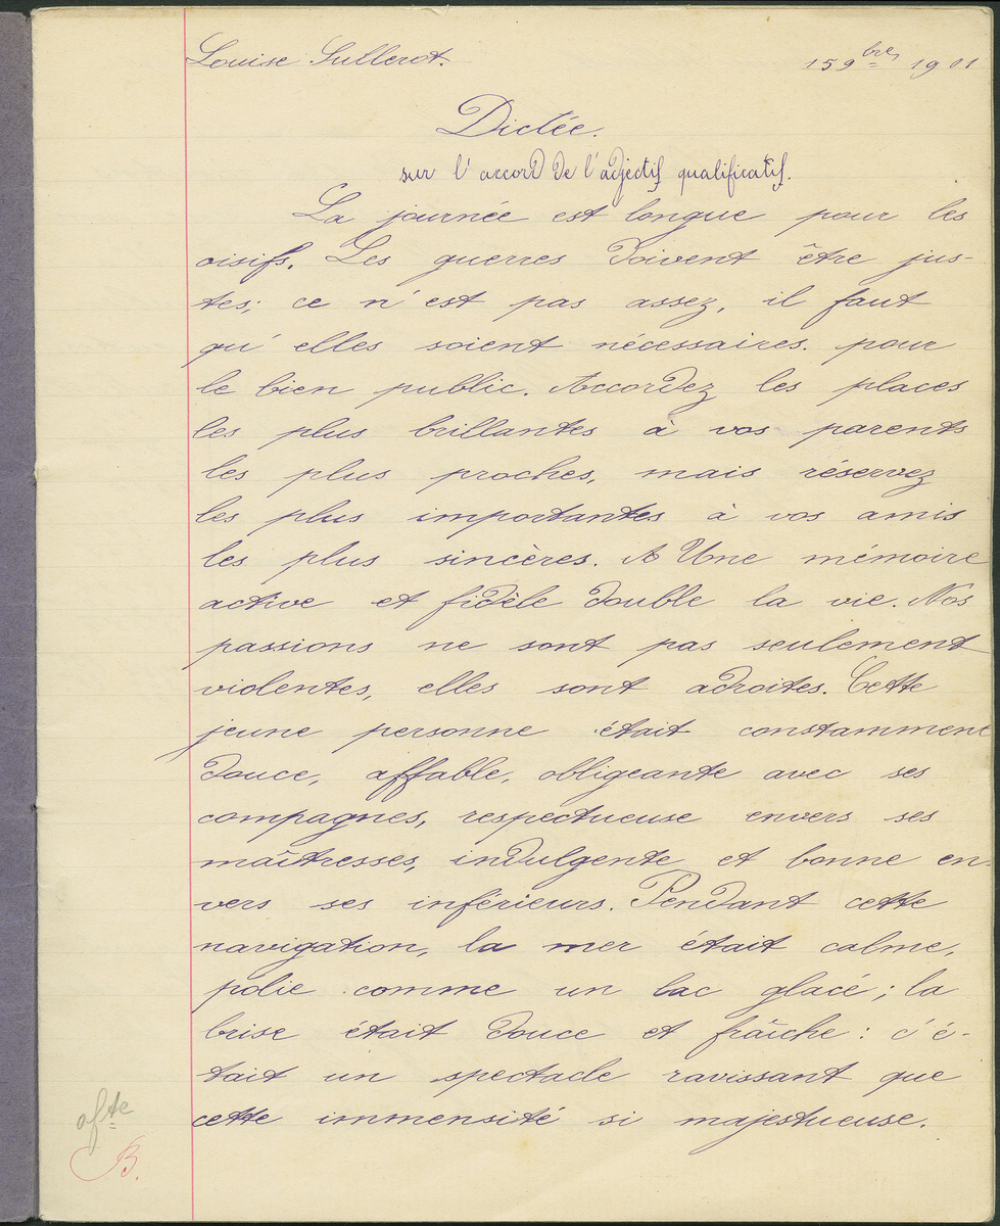 Louise Sullerot. 15 9bre 1901
Dictée.
sur l'accord de l'adjectif qualificatif.
La journée est longue pour les
oisifs. Les guerres doivent être jus-
tes; ce n'est pas assez, il faut
qu'elles soient nécessaires. pour
le bien public. Accordez les places
les plus brillantes à vos parents
les plus proches, mais réservez
les plus importantes à vos amis
les plus sincères. A Une mémoire
active et fidèle double la vie. Nos
passions ne sont pas seulement
violentes, elles sont adroites. Cette
jeune personne était constamment
douce, affable, obligeante avec ses
compagnes, respectueuse envers ses
maîtresses, indulgente et bonne en-
vers ses inférieurs. Pendant cette
navigation, la mer était calme,
polie comme un lac glacé; la
brise était douce et fraîche: c'é-
tait un spectacle ravissant que
cette immensité si majestueuse.
B.